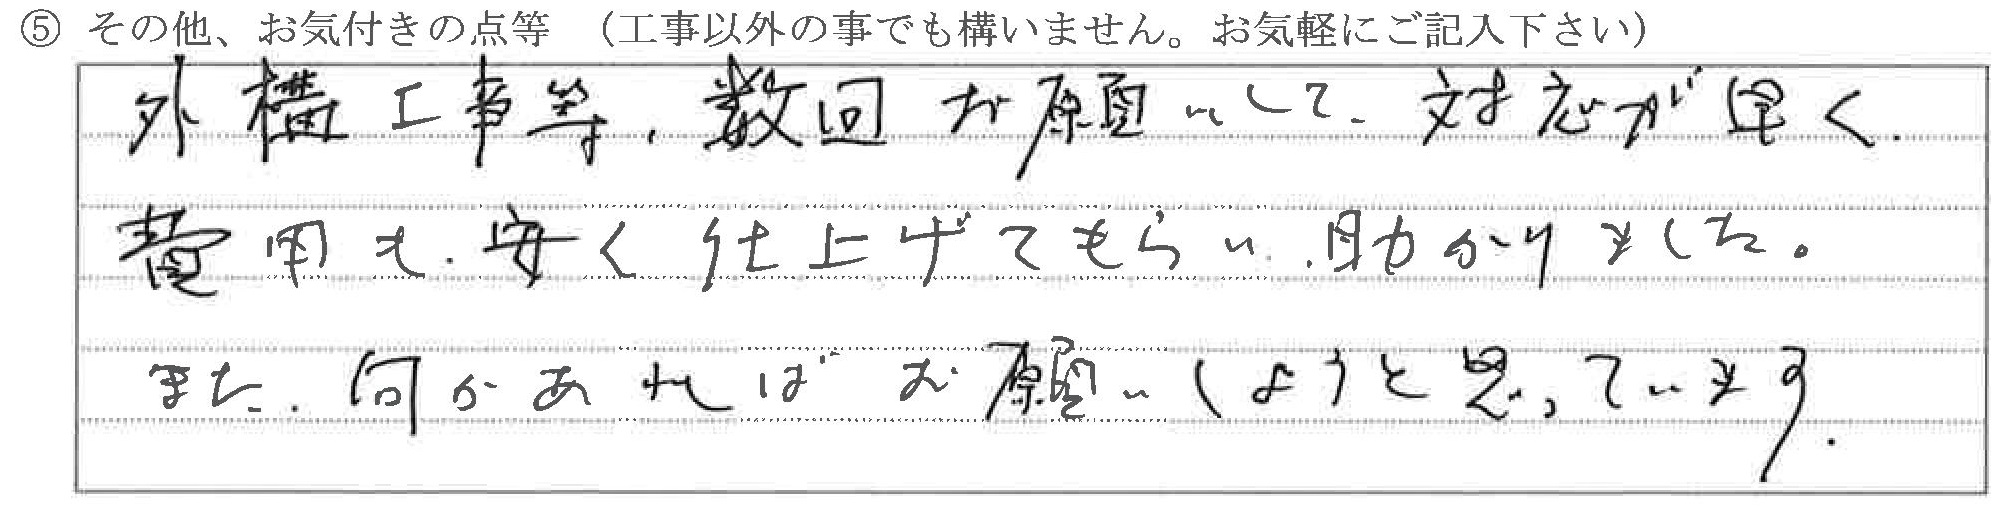 ⑤ その他、お気付きの点等 （工事以外の事でも構いません。お気軽にご記入下さい）
外構工事等、数回お願いして、対応が早く、
費用も、安く仕上げてもらい、助かりました。
また、何かあればお願いしようと思っています。